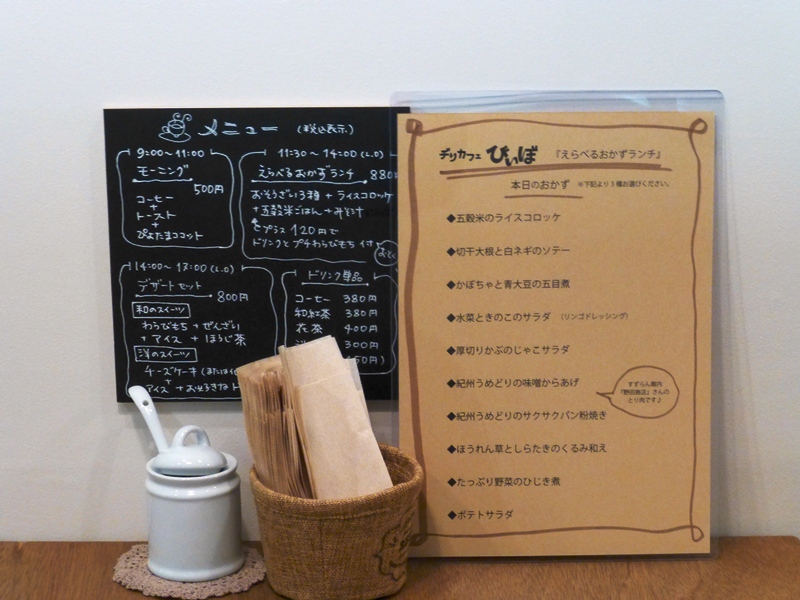 メニュー (税込表示)
9:00〜11:00
モーニング
500円
コーヒー
+
トースト
+
ぴよたまココット
11:30〜14:00(L.O)
えらべるおかずランチ 880
おそうざい3種 + ライスコロッケ
+ 五穀米ごはん + みそ汁
プラス 120円で
ドリンクとプチわらびもち 付
おとく
14:00〜17:00(L.O)
デザートセット
800円
和のスイーツ
わらびもち + ぜんざい
+ アイス + ほうじ茶
洋のスイーツ
チーズケーキ(または
+
アイス + お
ドリンク単品
コーヒー 380円
和紅茶 380円
花茶 400円
300円
50円)
デリカフェ ぴぃぼ 『えらべるおかずランチ』
本日のおかず ※下記より3種お選びください。
◆五穀米のライスコロッケ
◆切干大根と白ネギのソテー
◆かぼちゃと青大豆の五目煮
◆水菜ときのこのサラダ (リンゴドレッシング)
◆厚切りかぶのじゃこサラダ
◆紀州うめどりの味噌からあげ
すずらん館内
『野田商店』さんの
とり肉です♪
◆紀州うめどりのサクサクパン粉焼き
◆ほうれん草としらたきのくるみ和え
◆たっぷり野菜のひじき煮
◆ポテトサラダ